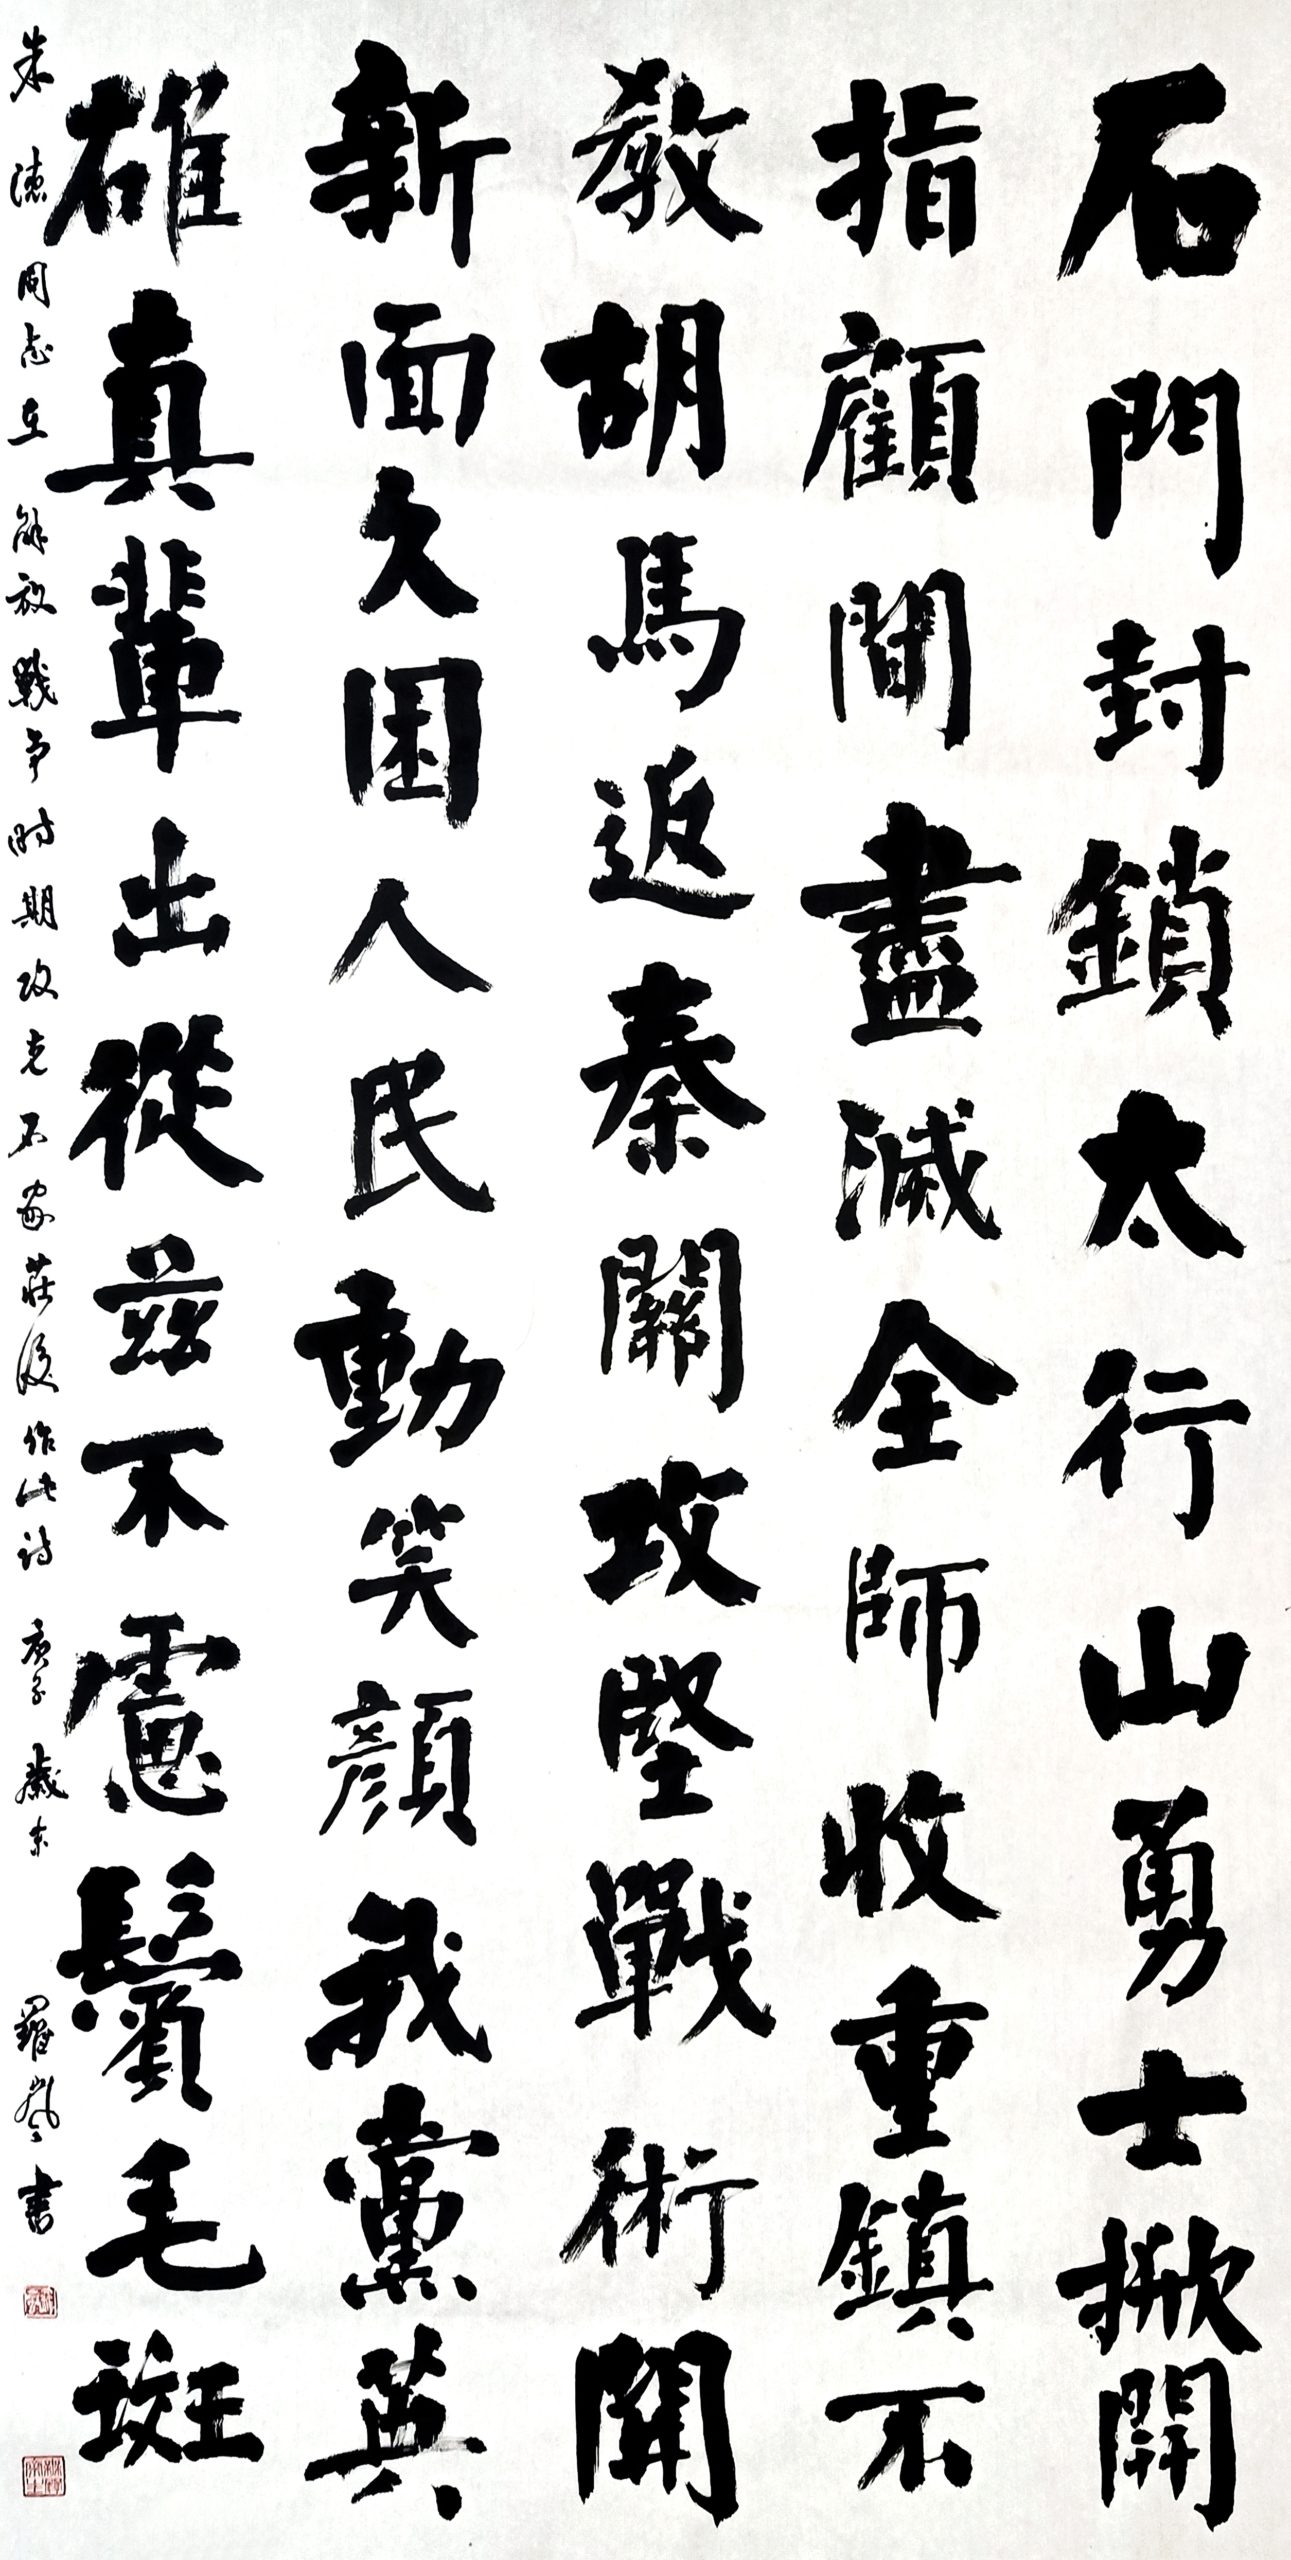 石門封鎖太行山勇士掀開
指顧間盡滅全師收重鎮不
教胡馬返秦關攻堅戰術開
新面久困人民動笑顏我黨英
雄真輩出從兹不慮鬢毛斑
朱德同志在解放戰爭时期攻克石家莊後作此诗 庚子歲末 羅嵐書